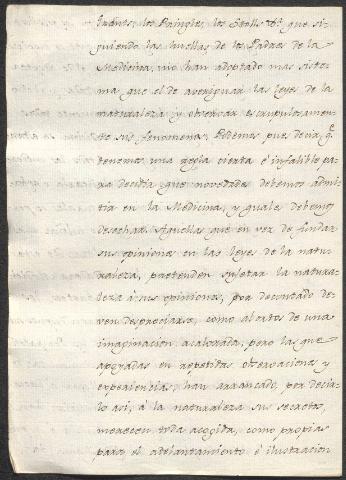 los Pringles, los Stolls &a. que si-
guiendo las huellas de los Padres de la
Medicina, no han adoptado mas siste-
ma que el de averiguar las leyes de la
naturaleza y observar escrupulosamen-
te sus fenomenos. Podemos pues decir q.e
tenemos una regla cierta é infalible pa-
ra decidir que novedades debemos admi-
tir en la Medicina, y quales debemos
desechar. Aquellas que en vez de fundar
sus opiniones en las leyes de la natu-
raleza, pretenden sujetar la natura-
leza á sus opiniones, por decontado de-
ven despreciarse, como abortos de una
imaginacion acalorada, pero las que
apoyadas en repetidas observaciones y
experiencias, han arrancado, por decir-
lo asi, á la naturaleza sus secretos,
merecen toda acogida, como propias
para el adelantamiento é ilustracion